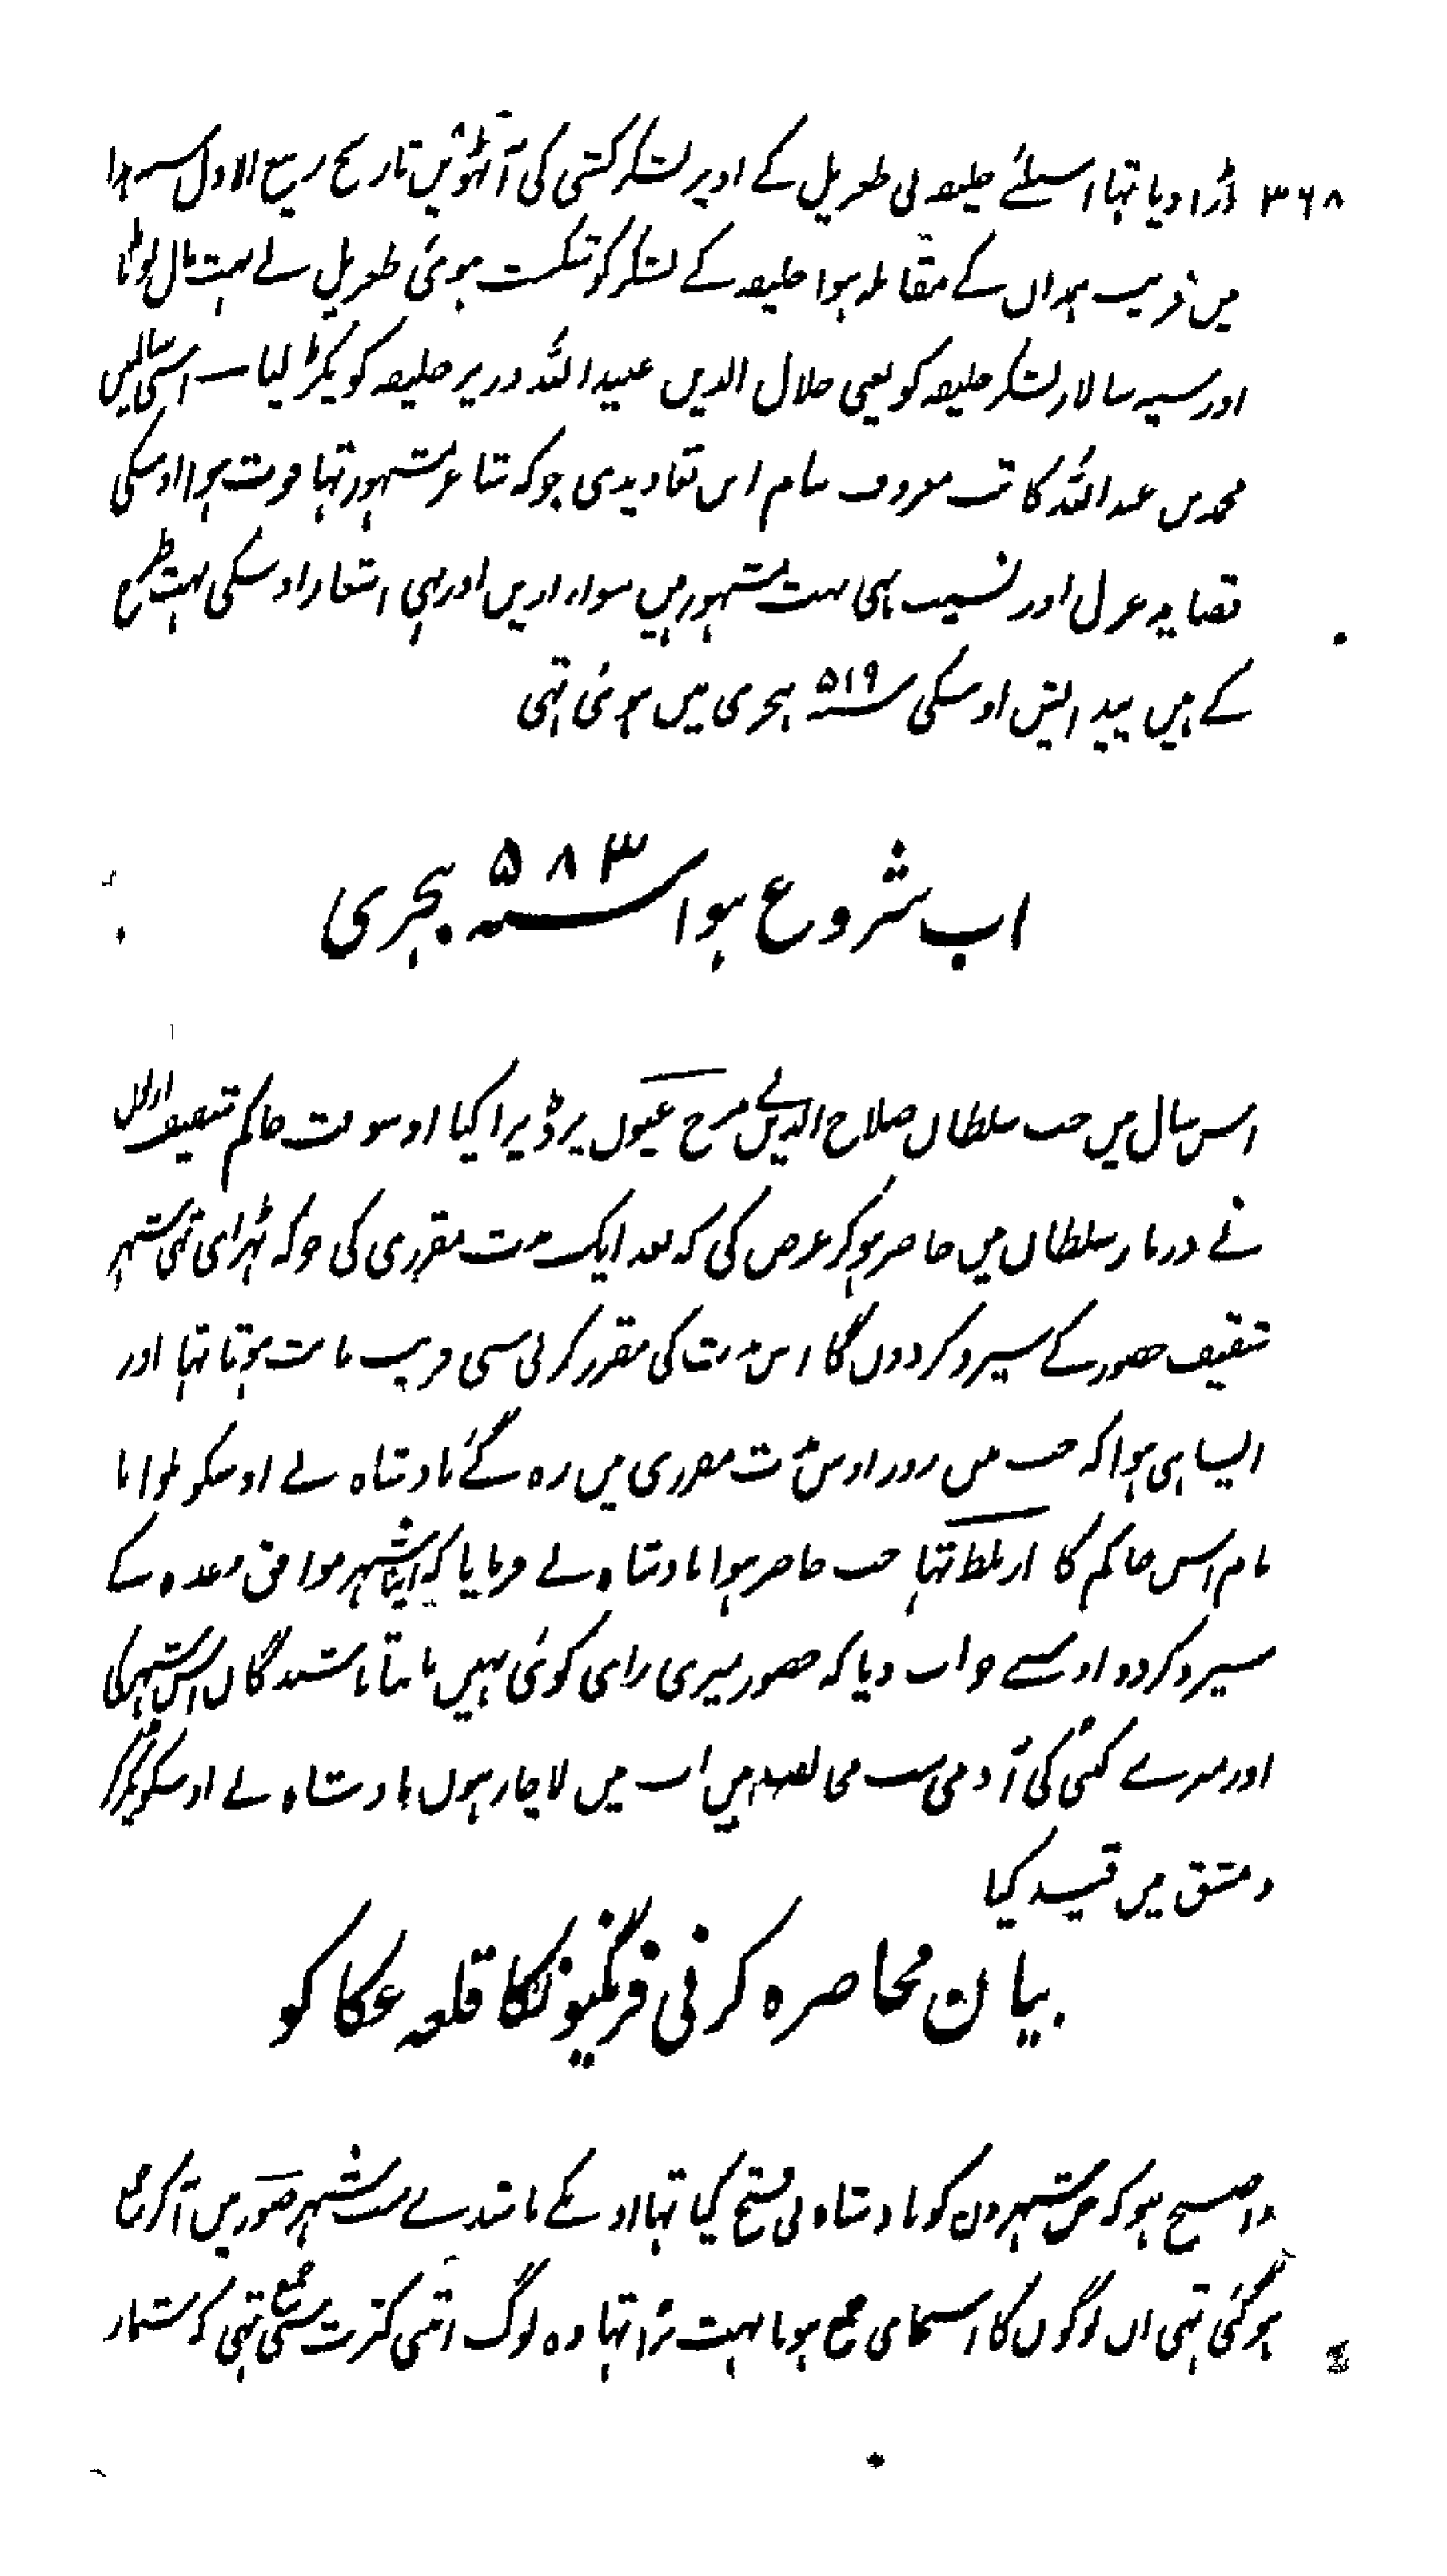 ۳۶۸ ڈرا دیا تہا اسلئے خلیفہ نی طغریل کے اوپر لشکر کشی کی آٹہویں تاریخ ربیع الاول سنہ ہذا
میں قریب ہمدان کے مقابلہ ہوا خلیفہ کے لشکر کو شکست ہوئی طغریل نے بہت مال لوٹا
اور سپہ سالار لشکر خلیفہ کو یعنی جلال الدین عبید اللہ وزیر خلیفہ کو پکڑ لیا — اسی سالمیں
محمد بن عبد اللہ کاتب معروف بنام ابن تعاویذی جو کہ شاعر مشہور تہا فوت ہوا اوسکی
قصاید غزل اور نسیب بہی بہت مشہور ہیں سواء ازیں اور بہی اشعار اوسکی بہت طرح
کے ہیں پیدایش اوسکی سنہ ۵۱۹ ہجری میں ہوئی تہی
اب شروع ہوا سنہ ۵۸۳ ہجری
اس سال میں جب سلطان صلاح الدین نے مرج عیون پر ڈیرا کیا اوسوقت حاکم شقیف ارنون
نے دربار سلطان میں حاضر ہو کر عرض کی کہ بعد ایک مدت مقرری کی جو کہ ٹہرای تہی شہر
شقیف حضور کے سپرد کر دوں گا اس مدت کی مقرر کرنی سی فریب ثابت ہوتا تہا اور
ایسا ہی ہوا کہ جب تین روز اوس مدت مقرری میں رہ گئے بادشاہ نے اوسکو بلوایا
نام اس حاکم کا ارنلط تہا جب حاضر ہوا بادشاہ نے فرمایا کہ اپنا شہر موافق وعدہ کے
سپرد کردو اوسنے جواب دیا کہ حضور میری رای کوئی نہیں مانتا باشندگان اس شہر کی
اور میرے کنبی کی آدمی سب مخالف ہیں اب میں لاچار ہوں بادشاہ نے اوسکو پکڑ کر
دمشق میں قید کیا
بیان محاصرہ کرنی فرنگیونکا قلعہ عکا کو
واضح ہو کہ جن شہروں کو بادشاہ نی فتح کیا تہا اونکے باشندے سب شہر صور میں آکر جمع
ہو گئی تہی ان لوگوں کا اسجای جمع ہونا بہت بڑا تہا وہ لوگ اتنی کثرت سی جمع تہی کہ شمار